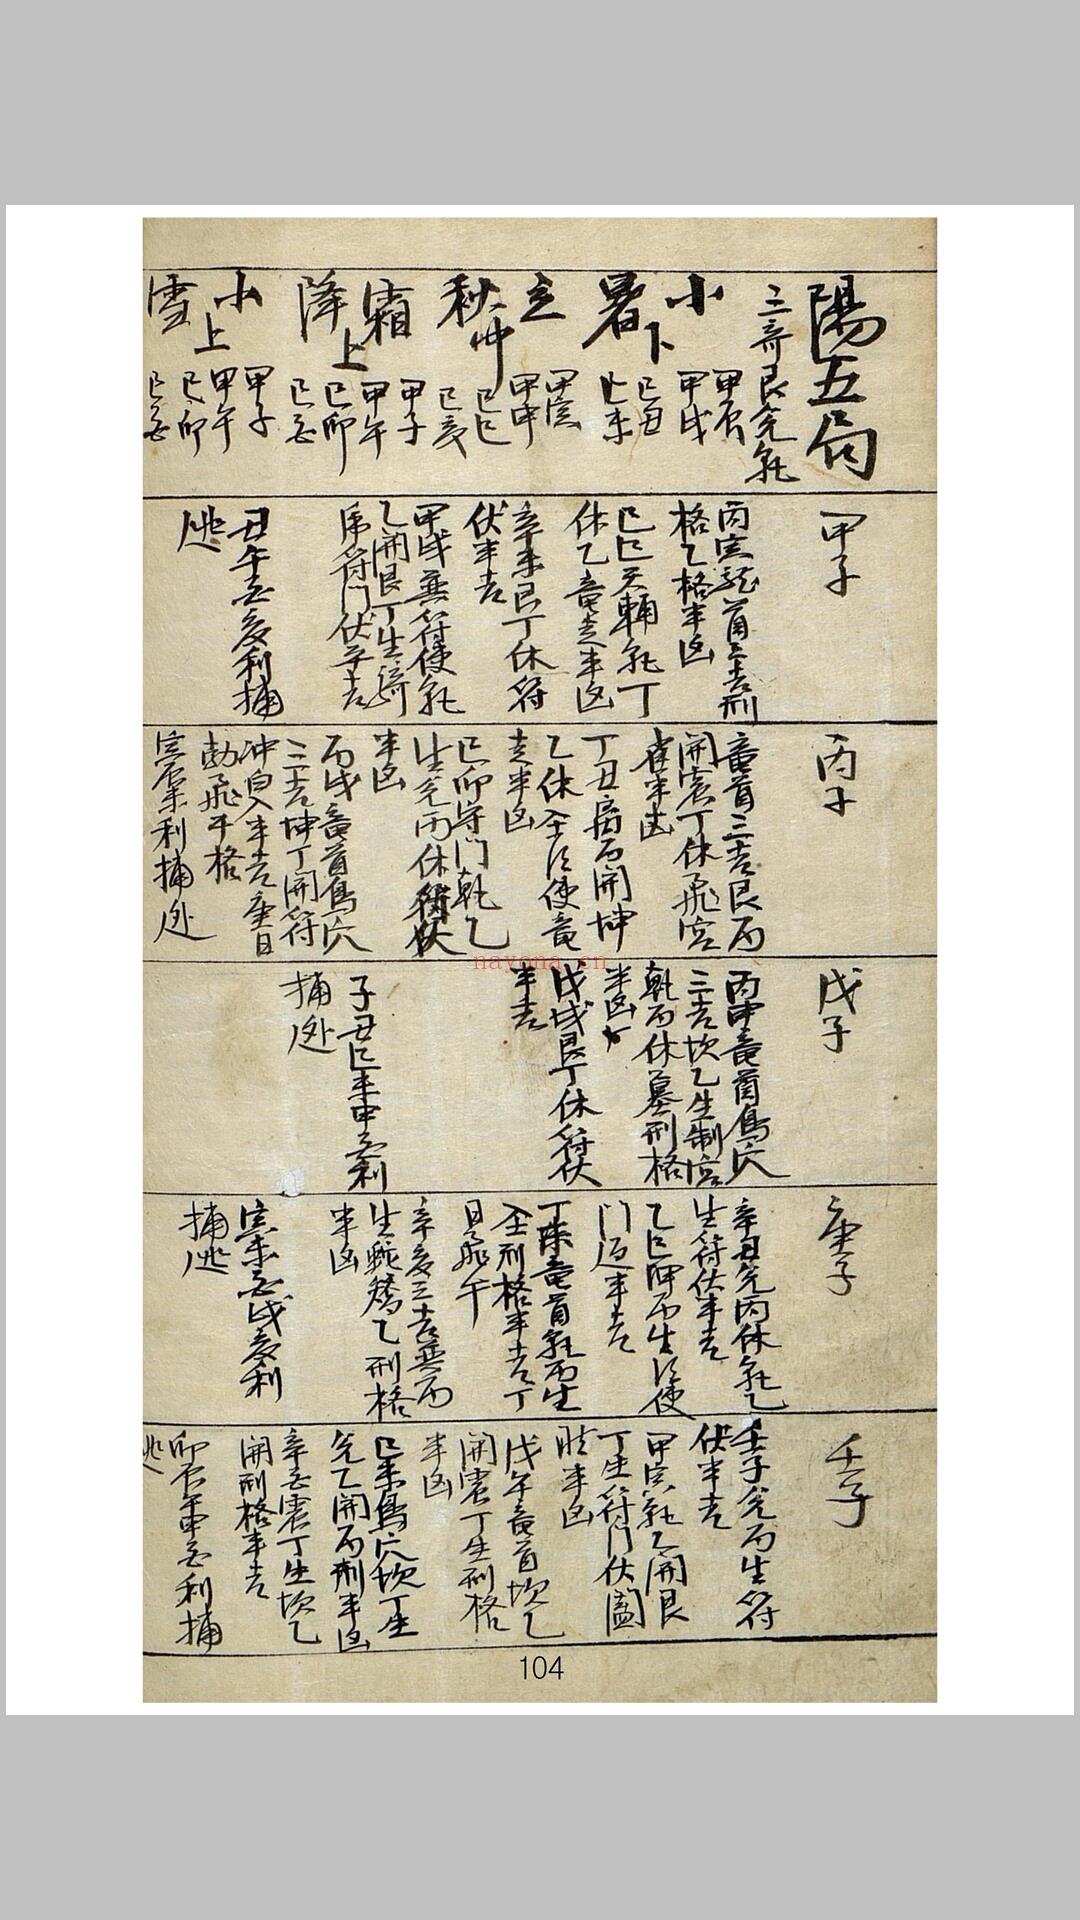 陽五局
三奇艮兌乾
小暑下
甲辰
甲戌
己丑
己未
立秋中
甲寅
甲申
己巳
己亥
霜降上
甲子
甲午
己卯
己酉
小雪上
甲子
甲午
己卯
己酉
甲子
丙寅龍首三吉刑
格乙格半凶
己巳天輔乾丁
休乙竜走半凶
辛未艮丁休符
伏半吉
甲戌無符使乾
乙開艮丁生
符門伏半吉
丑午酉亥利捕
逃
丙子
竜首三吉艮丙
開震丁休飛宮
雀半凶
丁丑 丙開坤
乙休 使竜
走半凶
己卯守門乾乙
生兌丙休符伏
半凶
丙戌竜首鳥穴
三吉坤丁開符
冲白入半吉庚日
勃飛干格
寅辰未利捕逃
戊子
丙申竜首鳥穴
三吉坎乙生制宮
乾丙休墓刑格
半凶
戊戌艮丁休符伏
半吉
子丑巳未申酉利
捕逃
庚子
辛丑兌丙休乾乙
生符伏半吉
乙巳坤丙生 使
門迫半吉
丁未竜首乾丙生
刑格半吉丁
日飛干
辛亥三吉無丙
生蛇矯乙刑格
半凶
寅未酉戌亥利
捕逃
壬子
壬子兌丙生符
伏半吉
甲寅乾乙開艮
丁生符門伏
半凶
戊午竜首坎乙
開震丁生刑格
半凶
己未鳥穴坎丁生
兌乙開丙刑半凶
辛酉震丁生坎乙
開刑格半吉
卯辰午申酉利捕
逃
nayona.cn
104